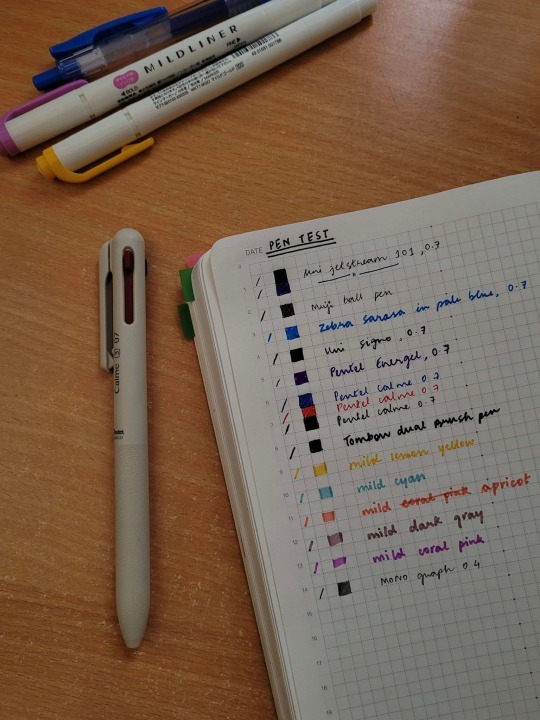 MILDLINER
Calme 07
DATE PEN TEST
Uni jetstream 101, 0.7
Muji ball pen
Zebra sarasa in pale blue, 0.7
Uni signo, 0.7
Pentel Energel, 0.7
Pentel calme 0.7
Pentel calme 0.7
Pentel calme 0.7
Tombow dual brush pen
mild lemon yellow
mild cyan
mild coral pink apricot
mild dark gray
mild coral pink
MONO graph 0.4